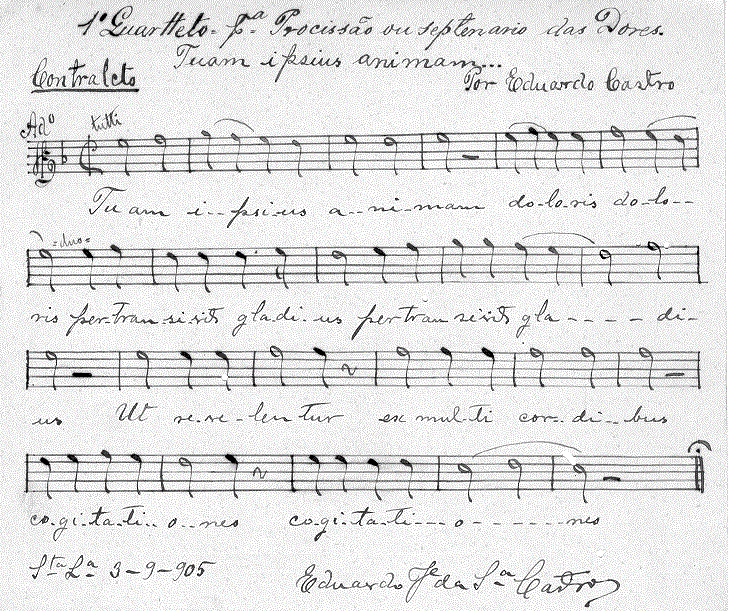 1º Quartteto. pª. Procissão ou septenario das Dores.
Tuam ipsius animam...
Contralcto
Por Eduardo Castro
Adº tutti
Tu am i-- psi-us a--ni-mam do-lo-ris do-lo--
=duo=
ris per-tran-si-vit gla.di-us pertran sivit gla---- di-
us Ut re-ve-len tur ex mul-ti cor-di--bus
co-gi-ta-ti-- o--nes co-gi-ta-ti--- o------nes
Sta Lª 3-9-905
Eduardo Je da Sª Castro